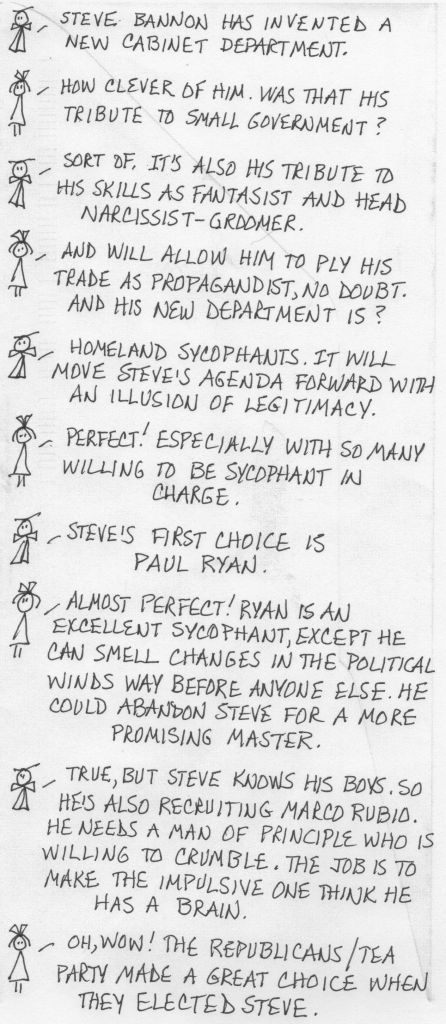 STEVE BANNON HAS INVENTED A
NEW CABINET DEPARTMENT.
HOW CLEVER OF HIM. WAS THAT HIS
TRIBUTE TO SMALL GOVERNMENT?
SORT OF. IT'S ALSO HIS TRIBUTE TO
HIS SKILLS AS FANTASIST AND HEAD
NARCISSIST-GROOMER.
AND WILL ALLOW HIM TO PLY HIS
TRADE AS PROPAGANDIST, NO DOUBT.
AND HIS NEW DEPARTMENT IS?
HOMELAND SYCOPHANTS. IT WILL
MOVE STEVE'S AGENDA FORWARD WITH
AN ILLUSION OF LEGITIMACY.
PERFECT! ESPECIALLY WITH SO MANY
WILLING TO BE SYCOPHANT IN
CHARGE.
STEVE'S FIRST CHOICE IS
PAUL RYAN.
ALMOST PERFECT! RYAN IS AN
EXCELLENT SYCOPHANT, EXCEPT HE
CAN SMELL CHANGES IN THE POLITICAL
WINDS WAY BEFORE ANYONE ELSE. HE
COULD ABANDON STEVE FOR A MORE
PROMISING MASTER.
TRUE, BUT STEVE KNOWS HIS BOYS. SO
HE'S ALSO RECRUITING MARCO RUBIO.
HE NEEDS A MAN OF PRINCIPLE WHO IS
WILLING TO CRUMBLE. THE JOB IS TO
MAKE THE IMPULSIVE ONE THINK HE
HAS A BRAIN.
OH, WOW! THE REPUBLICANS/TEA
PARTY MADE A GREAT CHOICE WHEN
THEY ELECTED STEVE.